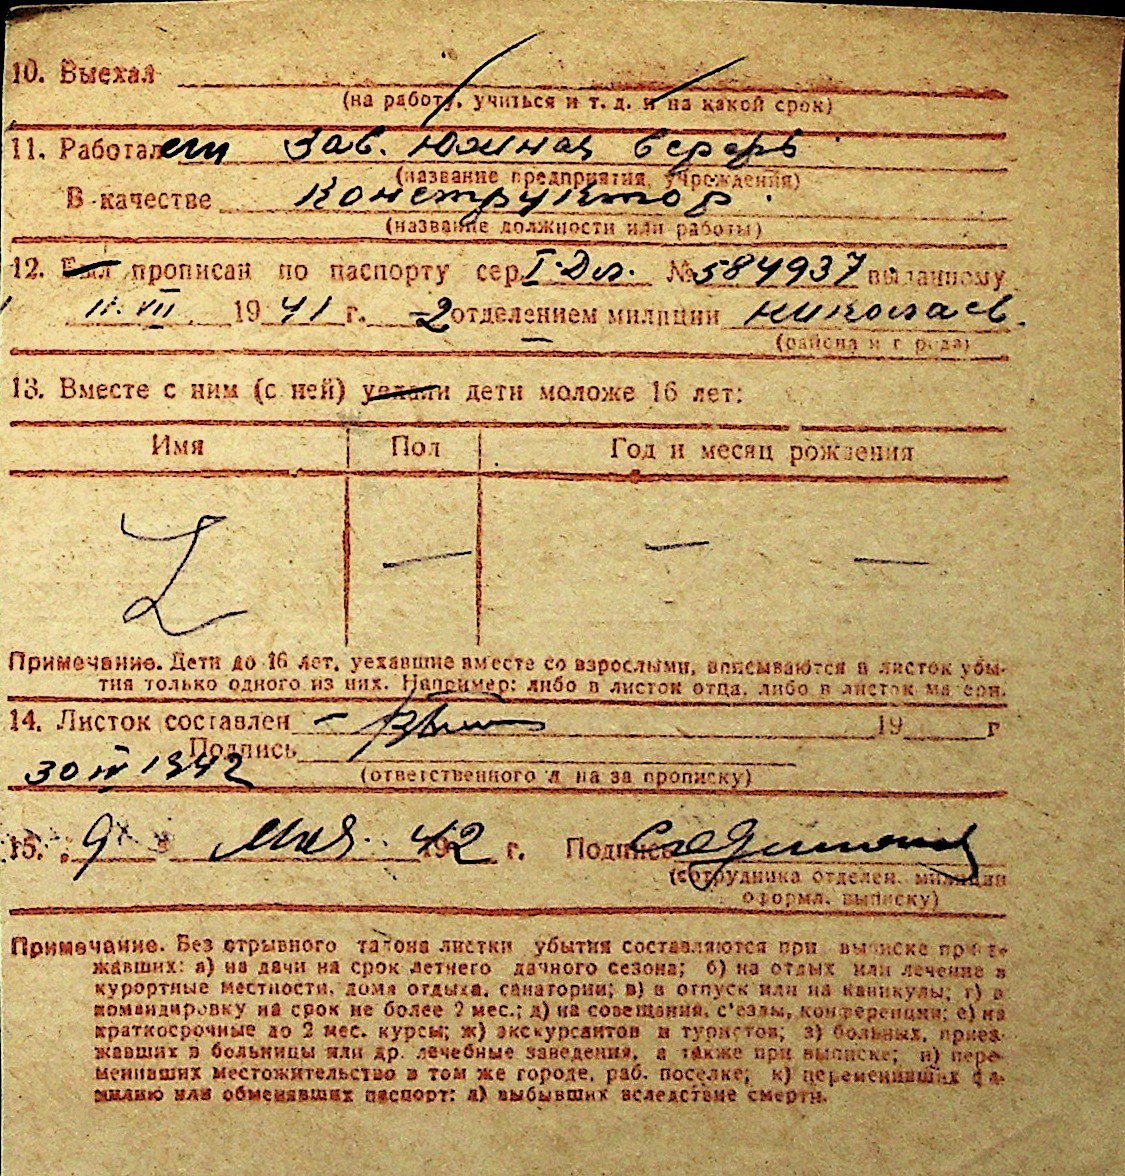 10. Выехал
(на работу, учиться и т. д. и на какой срок)
11. Работал Зав. Южная верфь
(название предприятия, учреждения)
В качестве Конструктор.
(название должности или работы)
12. Был прописан по паспорту сер. № 584937 выданному
11. VII 1941 г. 2 отделением милиции Николаев.
(района и города)
13. Вместе с ним (с ней) уехали дети моложе 16 лет:
Имя Пол Год и месяц рождения
Z — — —
Примечание. Дети до 16 лет, уехавшие вместе со взрослыми, вписываются в листок убы-
тия только одного из них. Например: либо в листок отца, либо в листок матери.
14. Листок составлен 19 г
Подпись
30 IV 1942
(ответственного л на за прописку)
15. 9 Мая 1942 г. Подпись
(сотрудника отделен. милиции
оформл. выписку)
Примечание. Без отрывного талона листки убытия составляются при выписке приез-
жавших: а) на дачи на срок летнего дачного сезона; б) на отдых или лечение в
курортные местности, дома отдыха, санатории; в) в отпуск или на каникулы; г) в
командировку на срок не более 2 мес.; д) на совещания, с'езды, конференции; е) на
краткосрочные до 2 мес. курсы; ж) экскурсантов и туристов; з) больных, приез-
жавших в больницы или др. лечебные заведения, а также при выписке; и) пере-
менивших местожительство в том же городе, раб. поселке; к) переменивших фа-
милию или обменявших паспорт; л) выбывших вследствие смерти.